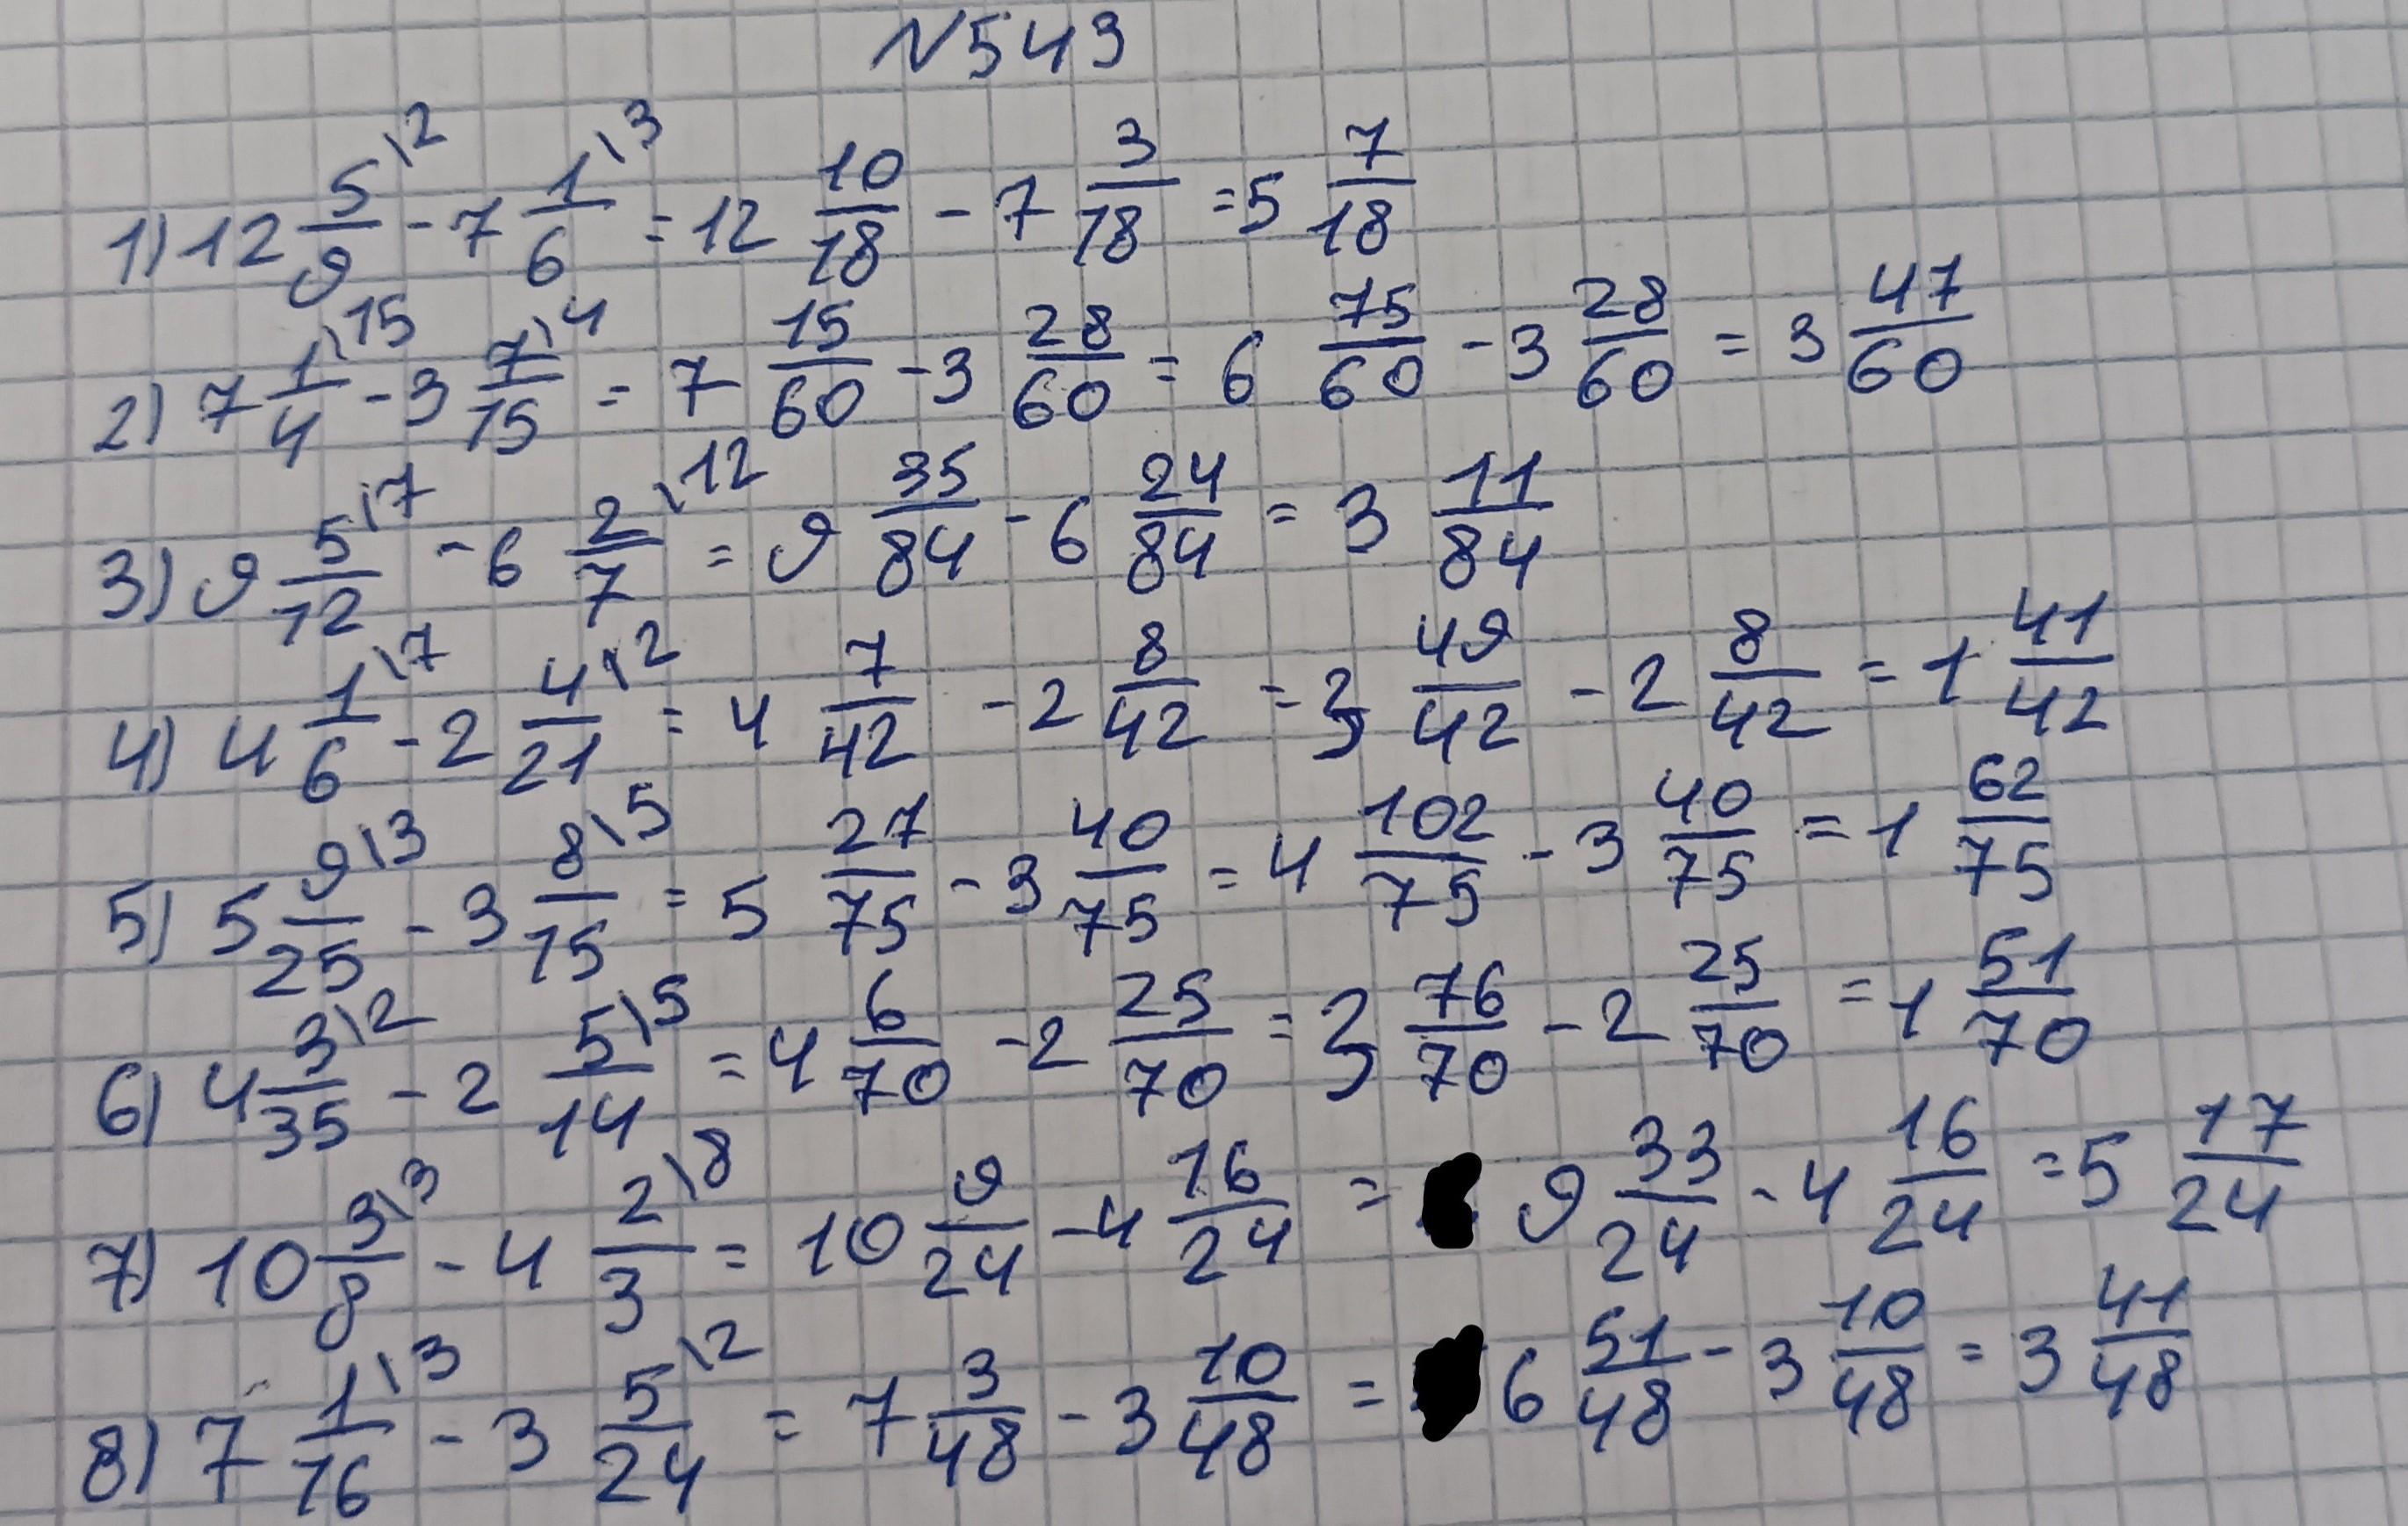 N543
1) 12 5/9 \2 - 7 1/6 \3 = 12 10/18 - 7 3/18 = 5 7/18
2) 7 1/4 \15 - 3 7/15 \4 = 7 15/60 - 3 28/60 = 6 75/60 - 3 28/60 = 3 47/60
3) 9 5/12 \7 - 6 2/7 \12 = 9 35/84 - 6 24/84 = 3 11/84
4) 4 1/6 \7 - 2 4/21 \2 = 4 7/42 - 2 8/42 = 3 49/42 - 2 8/42 = 1 41/42
5) 5 9/25 \3 - 3 8/15 \5 = 5 27/75 - 3 40/75 = 4 102/75 - 3 40/75 = 1 62/75
6) 4 3/35 \2 - 2 5/14 \5 = 4 6/70 - 2 25/70 = 3 76/70 - 2 25/70 = 1 51/70
7) 10 3/8 \3 - 4 2/3 \8 = 10 9/24 - 4 16/24 = 9 33/24 - 4 16/24 = 5 17/24
8) 7 1/16 \3 - 3 5/24 \2 = 7 3/48 - 3 10/48 = 6 51/48 - 3 10/48 = 3 41/48